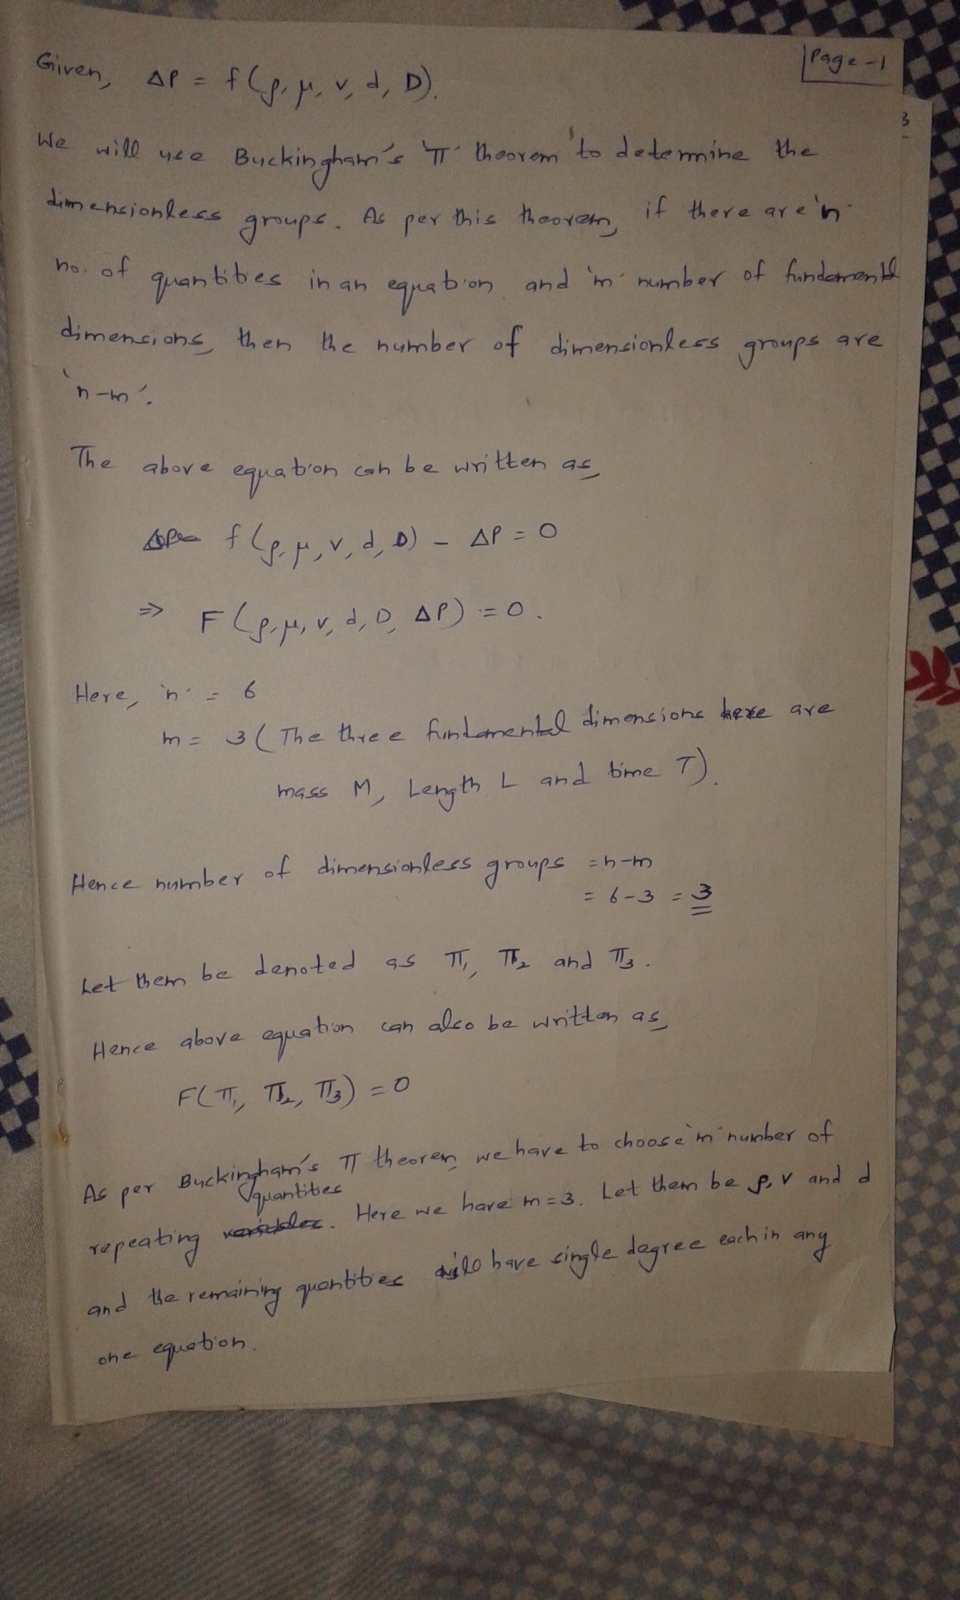 Page-1
Given, ΔP = f(ρ, μ, v, d, D).
We will use Buckingham's 'π' theorem to determine the
dimensionless groups. As per this theorem, if there are 'n'
no. of quantities in an equation and 'm' number of fundamental
dimensions, then the number of dimensionless groups are
'n-m'.
The above equation can be written as,
f(ρ, μ, v, d, D) - ΔP = 0
⇒ F(ρ, μ, v, d, D, ΔP) = 0.
Here, 'n' = 6
m = 3 (The three fundamental dimensions here are
mass M, Length L and time T).
Hence number of dimensionless groups = n-m
= 6-3 = 3
Let them be denoted as π1, π2 and π3.
Hence above equation can also be written as,
F(π1, π2, π3) = 0
As per Buckingham's π theorem, we have to choose 'm' number of
repeating quantities. Here we have m=3. Let them be ρ, v and d
and the remaining quantities will have single degree each in any
one equation.
3